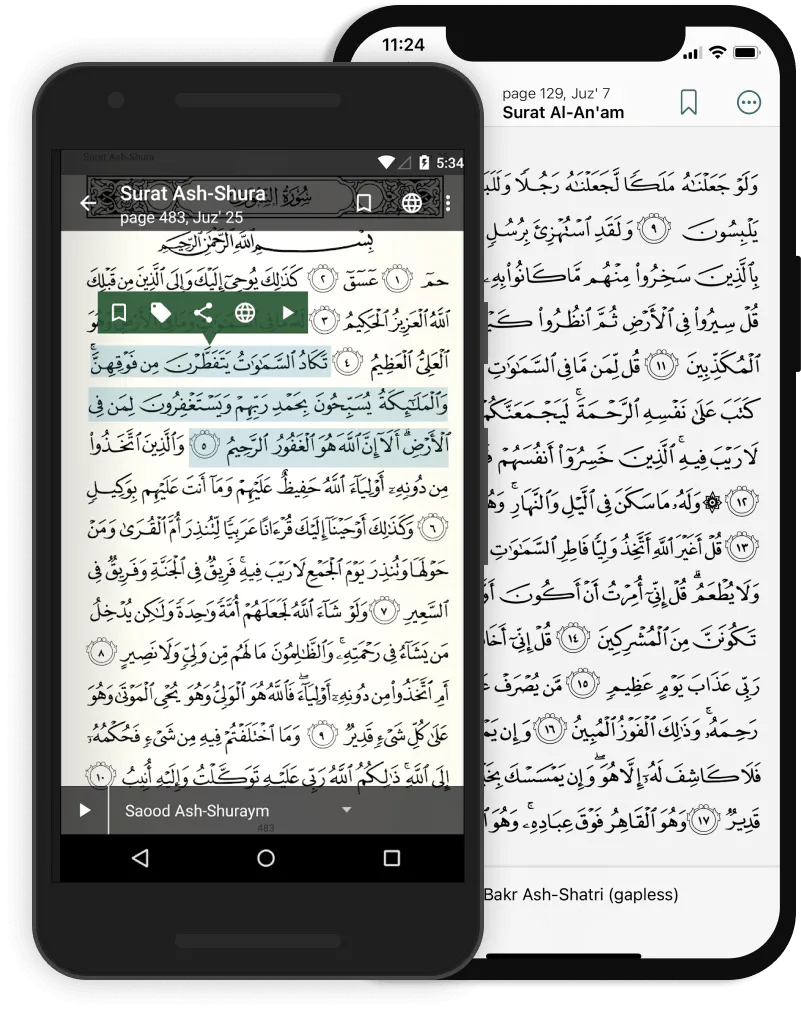 11:24
page 129, Juz' 7
Surat Al-An'am
وَلَوْ جَعَلْنَٰهُ مَلَكًا لَّجَعَلْنَٰهُ رَجُلًا
يَلْبِسُونَ ٩ وَلَقَدِ ٱسْتُهْزِئَ بِرُسُلٍ
بِٱلَّذِينَ سَخِرُوا۟ مِنْهُم مَّا كَانُوا۟ بِهِۦ
قُلْ سِيرُوا۟ فِى ٱلْأَرْضِ ثُمَّ ٱنظُرُوا۟
ٱلْمُكَذِّبِينَ ١١ قُل لِّمَن مَّا فِى ٱلسَّمَٰوَٰتِ
كَتَبَ عَلَىٰ نَفْسِهِ ٱلرَّحْمَةَ ۚ لَيَجْمَعَنَّكُمْ
لَا رَيْبَ فِيهِ ۚ ٱلَّذِينَ خَسِرُوٓا۟ أَنفُسَهُمْ
١٢ ۞ وَلَهُۥ مَا سَكَنَ فِى ٱلَّيْلِ وَٱلنَّهَارِ ۚ
١٣ قُلْ أَغَيْرَ ٱللَّهِ أَتَّخِذُ وَلِيًّا فَاطِرِ ٱلسَّمَٰوَٰتِ
وَلَا يُطْعَمُ ۗ قُلْ إِنِّىٓ أُمِرْتُ أَنْ أَكُونَ
تَكُونَنَّ مِنَ ٱلْمُشْرِكِينَ ١٤ قُلْ إِنِّىٓ
رَبِّى عَذَابَ يَوْمٍ عَظِيمٍ ١٥ مَّن يُصْرَفْ
رَحِمَهُۥ ۚ وَذَٰلِكَ ٱلْفَوْزُ ٱلْمُبِينُ ١٦ وَإِن
فَلَا كَاشِفَ لَهُۥٓ إِلَّا هُوَ ۖ وَإِن يَمْسَسْكَ
قَدِيرٌ ١٧ وَهُوَ ٱلْقَاهِرُ فَوْقَ عِبَادِهِۦ ۚ وَهُوَ
Bakr Ash-Shatri (gapless)
5:34
Surat Ash-Shura
Surat Ash-Shura
page 483, Juz' 25
بِسْمِ ٱللَّهِ ٱلرَّحْمَٰنِ ٱلرَّحِيمِ
حمٓ ١ عٓسٓقٓ ٢ كَذَٰلِكَ يُوحِىٓ إِلَيْكَ وَإِلَى ٱلَّذِينَ مِن قَبْلِكَ
ٱللَّهُ ٱلْعَزِيزُ ٱلْحَكِيمُ ٣ لَهُۥ مَا فِى ٱلسَّمَٰوَٰتِ وَمَا فِى ٱلْأَرْضِ ۖ وَهُوَ
ٱلْعَلِىُّ ٱلْعَظِيمُ ٤ تَكَادُ ٱلسَّمَٰوَٰتُ يَتَفَطَّرْنَ مِن فَوْقِهِنَّ ۚ
وَٱلْمَلَٰٓئِكَةُ يُسَبِّحُونَ بِحَمْدِ رَبِّهِمْ وَيَسْتَغْفِرُونَ لِمَن فِى
ٱلْأَرْضِ ۗ أَلَآ إِنَّ ٱللَّهَ هُوَ ٱلْغَفُورُ ٱلرَّحِيمُ ٥ وَٱلَّذِينَ ٱتَّخَذُوا۟
مِن دُونِهِۦٓ أَوْلِيَآءَ ٱللَّهُ حَفِيظٌ عَلَيْهِمْ وَمَآ أَنتَ عَلَيْهِم بِوَكِيلٍ
٦ وَكَذَٰلِكَ أَوْحَيْنَآ إِلَيْكَ قُرْءَانًا عَرَبِيًّا لِّتُنذِرَ أُمَّ ٱلْقُرَىٰ وَمَنْ
حَوْلَهَا وَتُنذِرَ يَوْمَ ٱلْجَمْعِ لَا رَيْبَ فِيهِ ۚ فَرِيقٌ فِى ٱلْجَنَّةِ وَفَرِيقٌ فِى
ٱلسَّعِيرِ ٧ وَلَوْ شَآءَ ٱللَّهُ لَجَعَلَهُمْ أُمَّةً وَٰحِدَةً وَلَٰكِن يُدْخِلُ
مَن يَشَآءُ فِى رَحْمَتِهِۦ ۚ وَٱلظَّٰلِمُونَ مَا لَهُم مِّن وَلِىٍّ وَلَا نَصِيرٍ ٨
أَمِ ٱتَّخَذُوا۟ مِن دُونِهِۦٓ أَوْلِيَآءَ ۖ فَٱللَّهُ هُوَ ٱلْوَلِىُّ وَهُوَ يُحْىِ ٱلْمَوْتَىٰ وَهُوَ
عَلَىٰ كُلِّ شَىْءٍ قَدِيرٌ ٩ وَمَا ٱخْتَلَفْتُمْ فِيهِ مِن شَىْءٍ فَحُكْمُهُۥٓ
إِلَى ٱللَّهِ ۚ ذَٰلِكُمُ ٱللَّهُ رَبِّى عَلَيْهِ تَوَكَّلْتُ وَإِلَيْهِ أُنِيبُ ١٠
Saood Ash-Shuraym
483